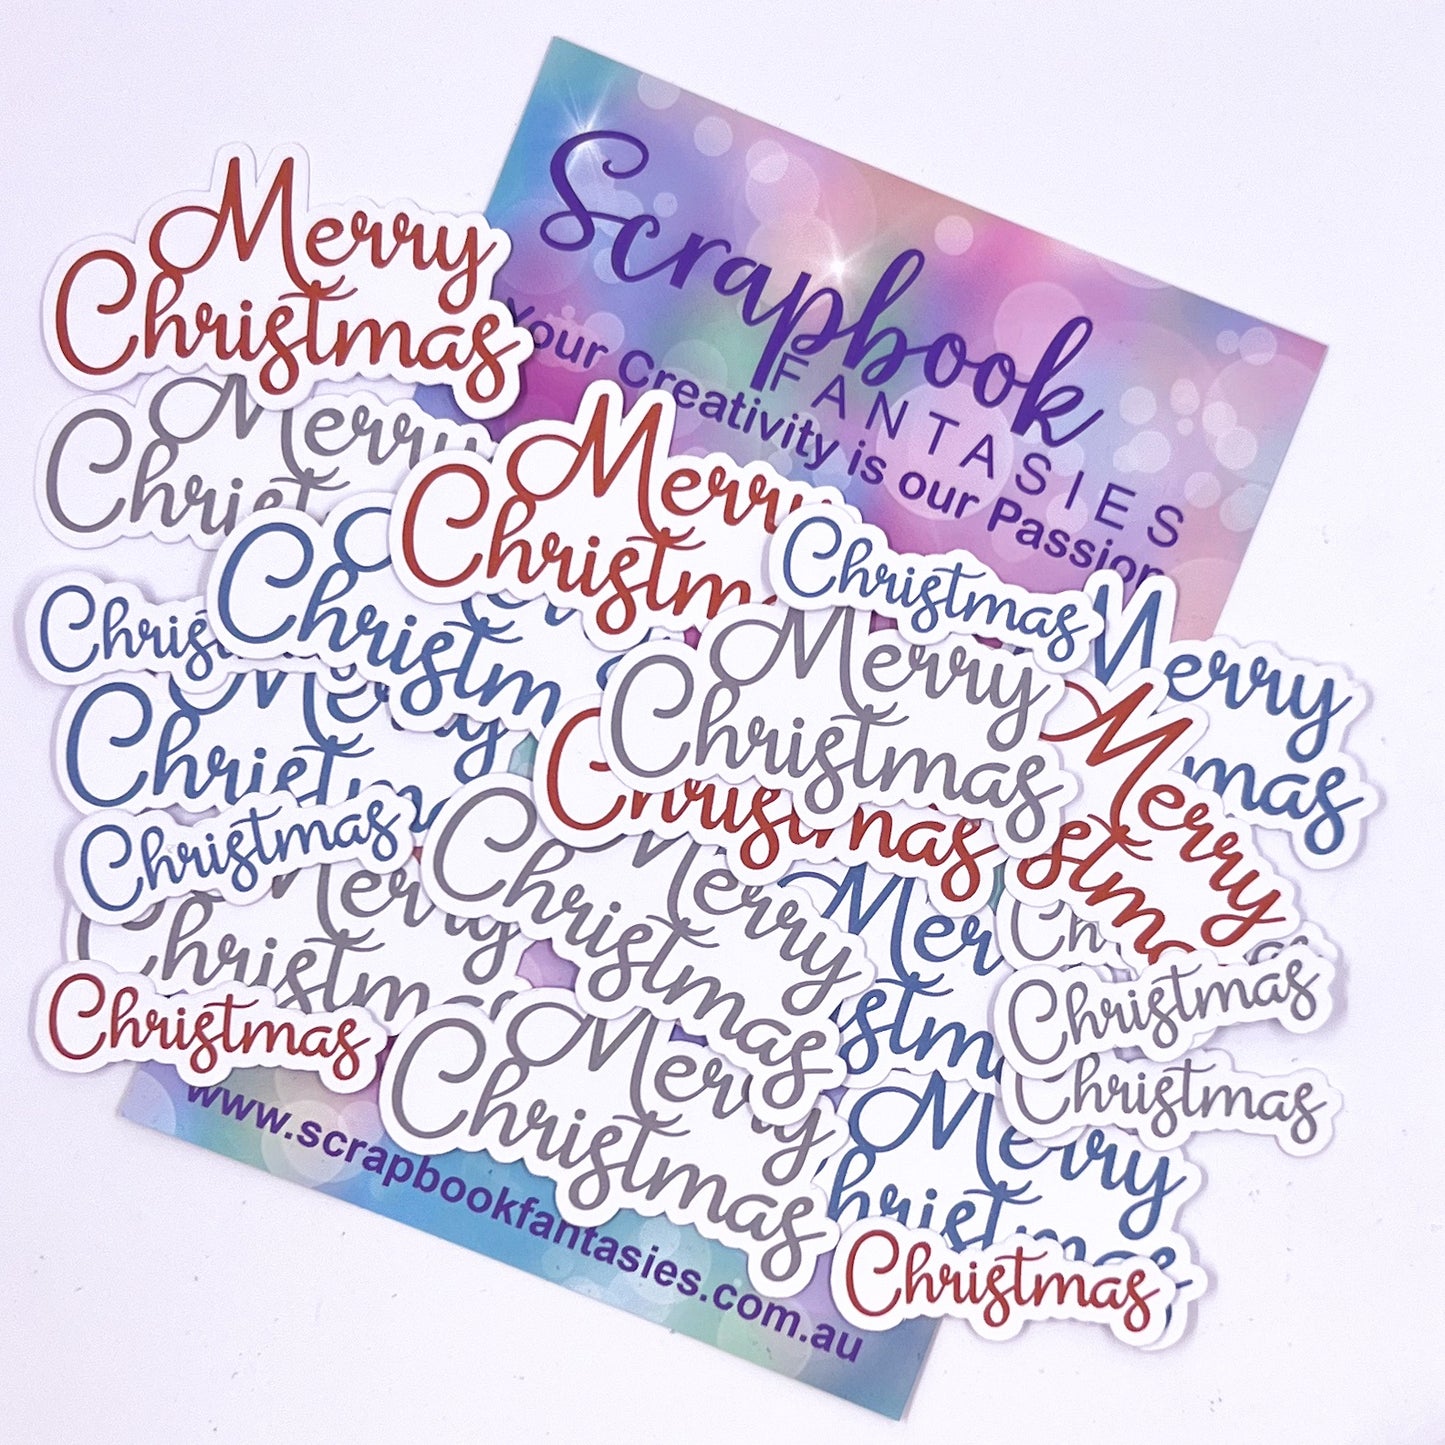 Scrapbook
FANTASIES
Your Creativity is our Passion
Merry
Christmas
Merry
Merry
Christmas
Christmas
Merry
Merry
Christmas
Merry
Christmas
Merry
Christmas
Merry
Christmas
Merry
Christmas
Christmas
Christmas
Christmas
Merry
Christmas
Merry
Christmas
www.scrapbookfantasies.com.au